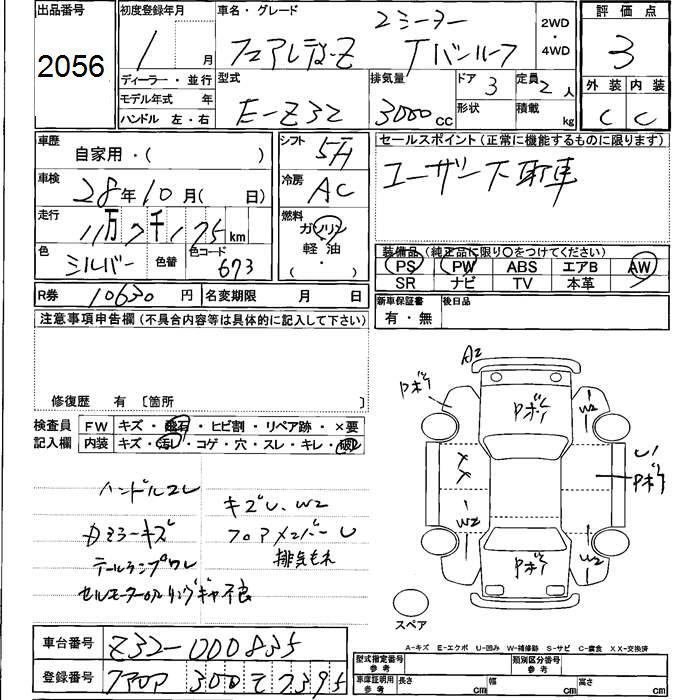 出品番号
2056
初度登録年月
1 月
車名・グレード
2シーター
フェアレディZ Tバールーフ
2WD
・
4WD
評価点
3
外装 内装
C C
ディーラー・並行
モデル年式 年
ハンドル 左・右
型式
E-Z32
排気量
3000 CC
ドア 3
形状
定員 2 人
積載 kg
車歴
自家用・( )
車検
28年10月( 日)
走行
11万7千175km
色
シルバー
色替
色コード
673
シフト
5F
冷房
AC
燃料
ガソリン
軽油
( ・ )
セールスポイント(正常に機能するものに限ります)
ユーザー下取車
装備品(純正品に限り○をつけてください)
PS PW ABS エアB AW
SR ナビ TV 本革
新車保証書
有・無
後日品
R券 10630 円 名変期限 月 日
注意事項申告欄(不具合内容等は具体的に記入して下さい)
修復歴 有 〔箇所 〕
検査員
記入欄
FW キズ・飛石・ヒビ割・リペア跡・×要
内装 キズ・汚レ・コゲ・穴・スレ・キレ・破レ
ハンドルスレ
キズU、W2
ドミラーキズ
フロアメンバーU
テールランプワレ
排気モレ
セルモーターorリングギヤ不良
A2
Pボケ
Pボケ
W2
XX
U1
Pボケ
W2
Pボケ
W2
スペア
A-キズ E-エクボ U-凹み W-補修跡 S-サビ C-腐食 XX-交換済
車台番号 Z32-000835
登録番号 300 7395
型式指定番号
参考
類別区分番号
参考
車庫証明用
参考
長さ cm 幅 cm 高さ cm